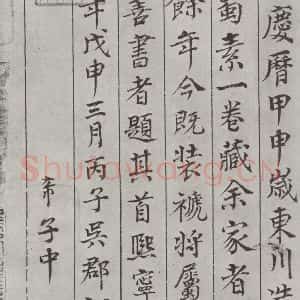 慶曆甲申歲東川造
蜀素一卷藏余家者
餘年今既裝褫將屬
善書者題其首熙寧
年戊申三月丙子吳郡
希子中
Shufawang.CN